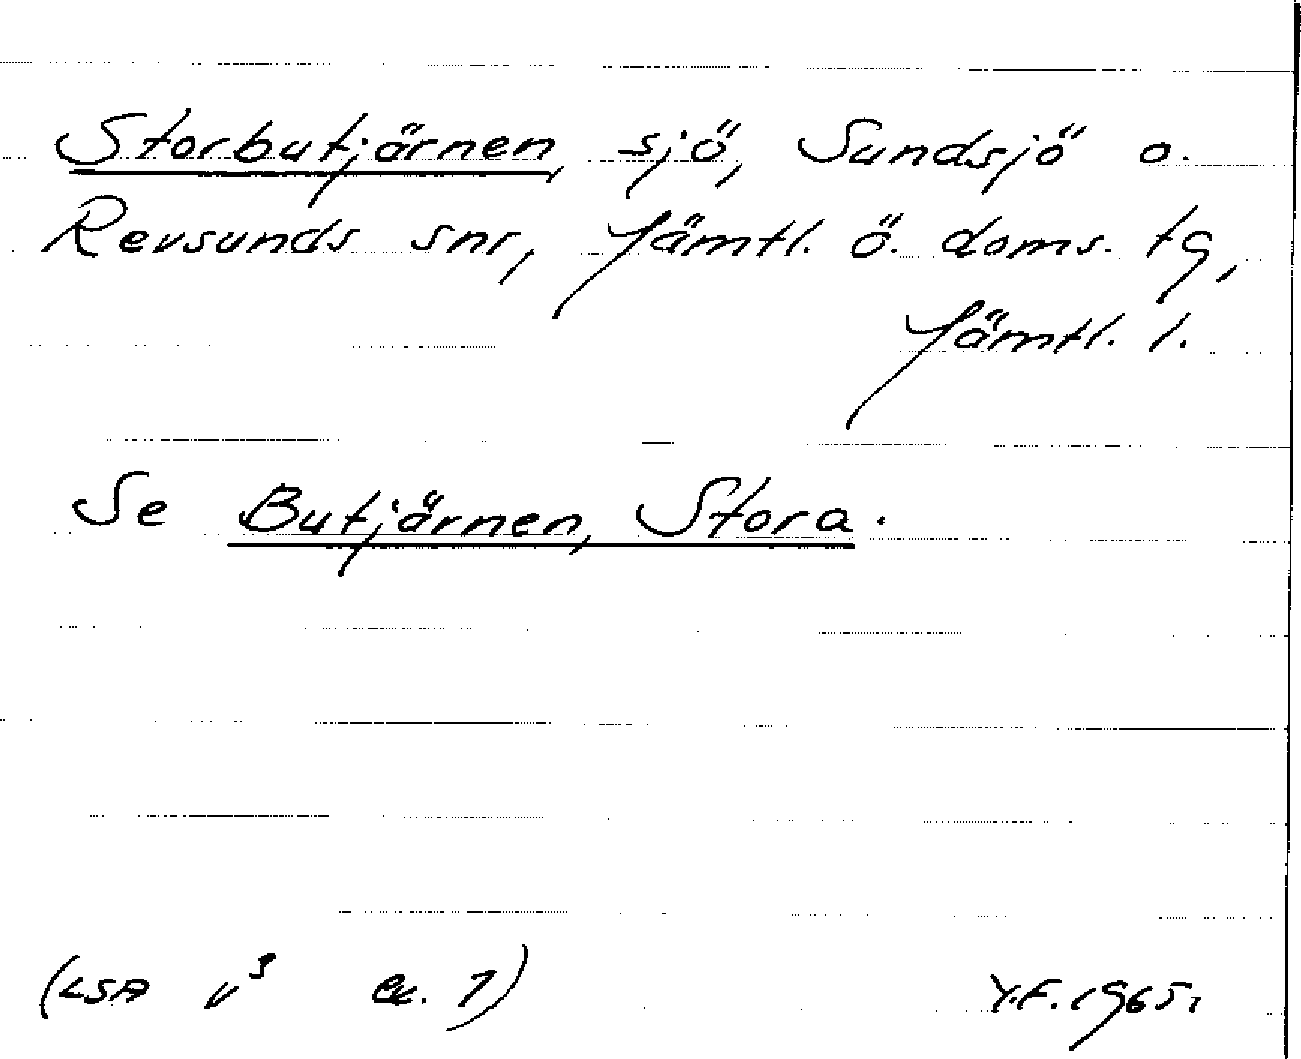 Storbutjärnen, sjö, Sundsjö o.
Revsunds snr, Jämtl. ö. doms. tg,
Jämtl. l.
Se Butjärnen, Stora.
(LSA V³ bl. 1) Y.F. 1965.